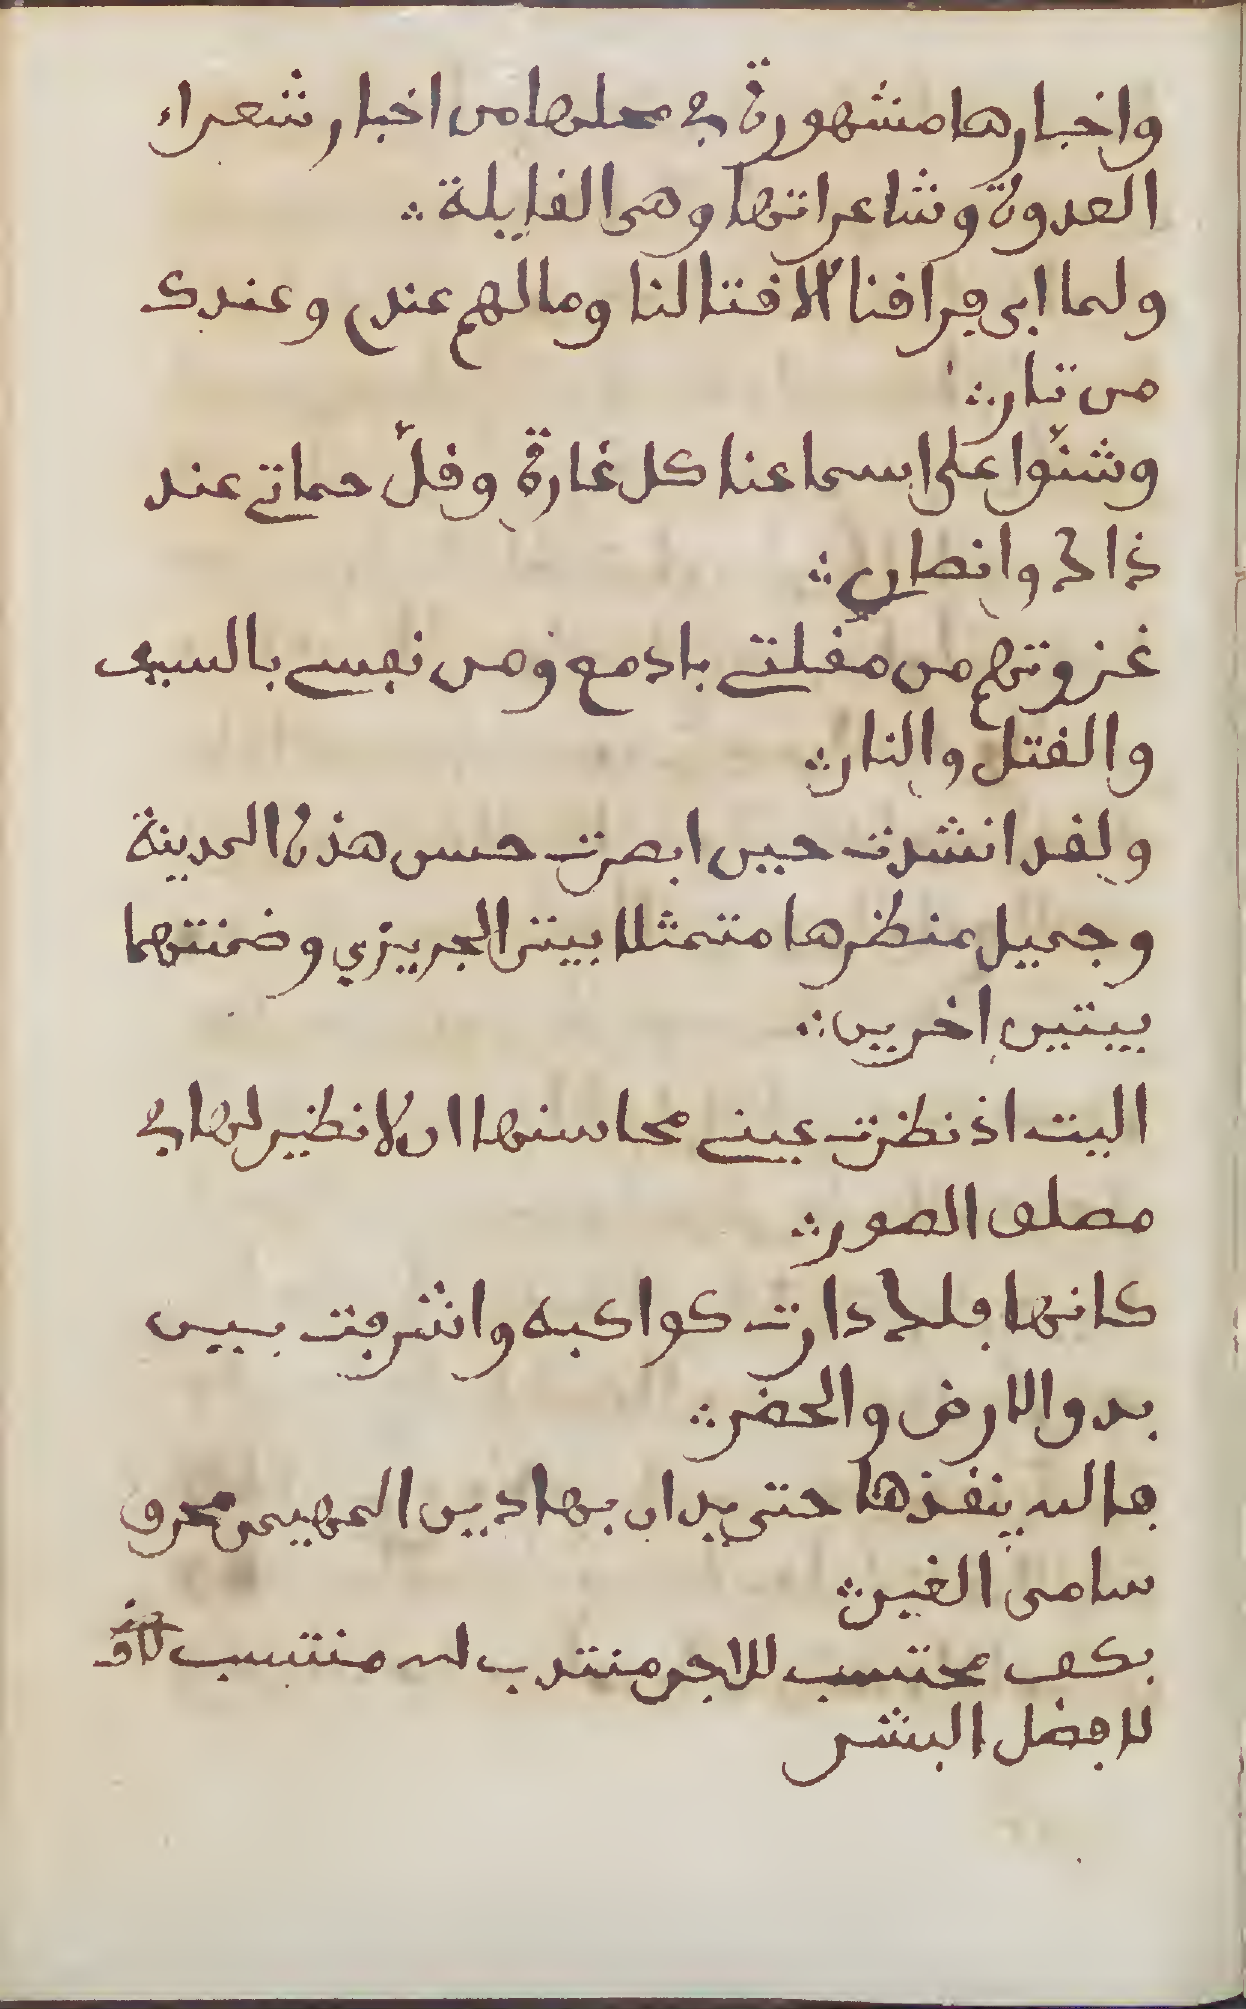 واخبارها مشهورة في محلها من اخبار شعراء
العدوة وشاعراتها وهي القايلة ∴
ولما ابى فراقنا الا قتالنا وما لهم عندي وعندك
من تار ∴
وشنوا على اسماعنا كل غارة وقلّ حماتي عند
ذاك وانصاري ∴
غزوتهم من مقلتي بادمع ومن نفسي بالسيف
والقتل والنار ∴
ولقد انشدت حين ابصرت حسن هذه المدينة
وجميل منظرها متمثلا ببيتي الجريزي وضمنتهما
بيتين اخرين ∴
اليت اذ نظرت عيني محاسنها ان لا نظير لها في
مصلف الصور ∴
كانها فلك دارت كواكبه واشرفت بين
بدو الارض والحضر ∴
فالله ينقذها حتى يدان بها دين المهيمن محروف
سامى الغير ∴
بكف محتسب للاجر منتدب لله منتسب
لافضل البشر